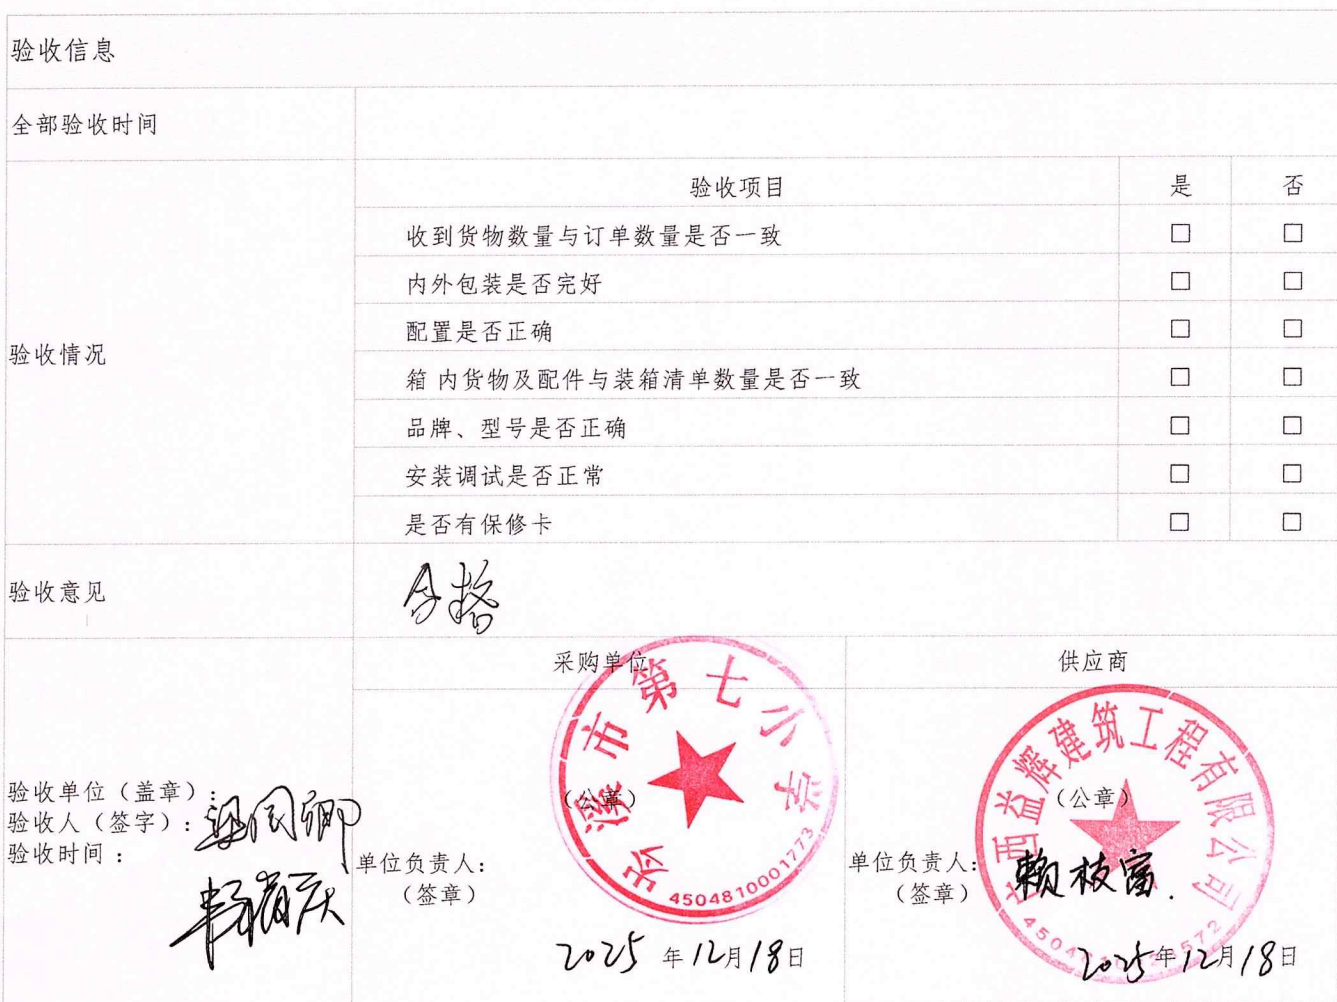 验收信息
全部验收时间
验收情况
验收项目 是 否
收到货物数量与订单数量是否一致 □ □
内外包装是否完好 □ □
配置是否正确 □ □
箱内货物及配件与装箱清单数量是否一致 □ □
品牌、型号是否正确 □ □
安装调试是否正常 □ □
是否有保修卡 □ □
验收意见 合格
采购单位 供应商
验收单位（盖章）：
验收人（签字）：
验收时间：
岑溪市第七小学
（公章）
4504810001773
单位负责人：
（签章）
2025年12月18日
广西益辉建筑工程有限公司
（公章）
单位负责人：赖枝富.
（签章）
2025年12月18日